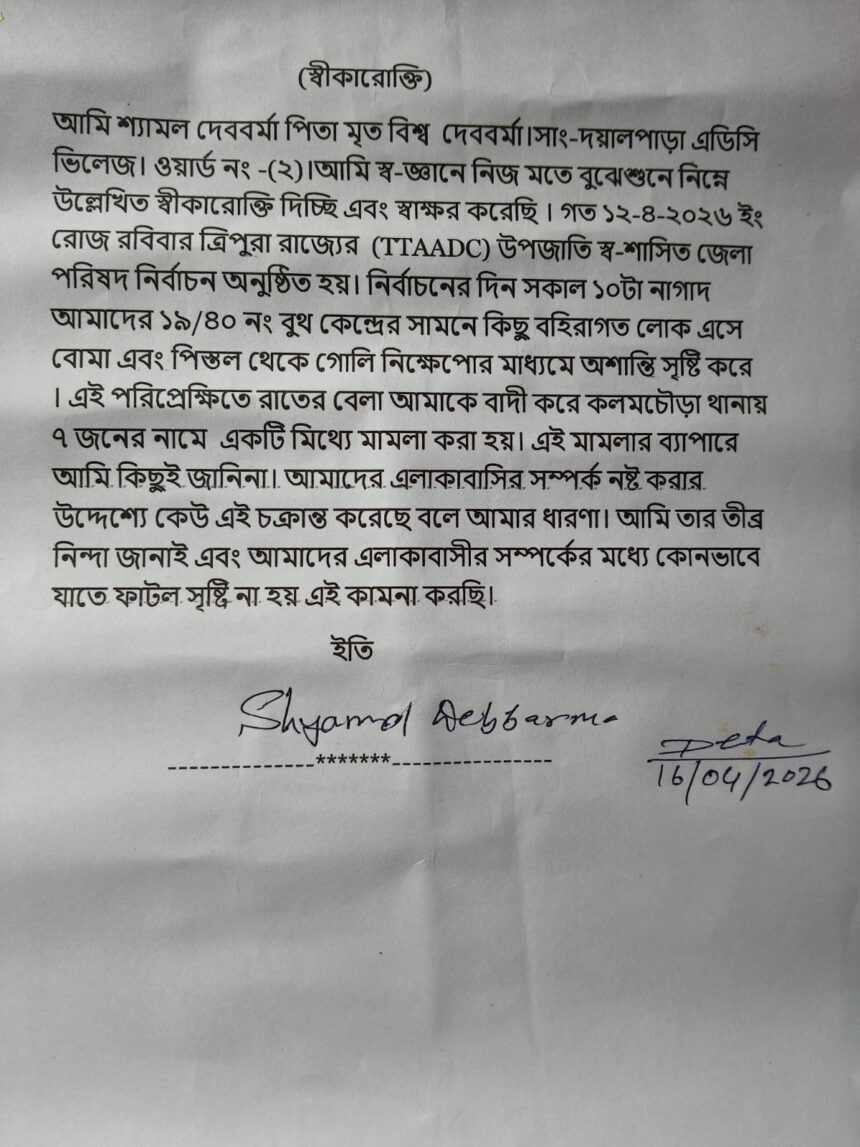 (স্বীকারোক্তি)
আমি শ্যামল দেববর্মা পিতা মৃত বিশ্ব দেববর্মা।সাং-দয়ালপাড়া এডিসি
ভিলেজ। ওয়ার্ড নং -(২)।আমি স্ব-জ্ঞানে নিজ মতে বুঝেশুনে নিম্নে
উল্লেখিত স্বীকারোক্তি দিচ্ছি এবং স্বাক্ষর করেছি । গত ১২-৪-২০২৬ ইং
রোজ রবিবার ত্রিপুরা রাজ্যের (TTAADC) উপজাতি স্ব-শাসিত জেলা
পরিষদ নির্বাচন অনুষ্ঠিত হয়। নির্বাচনের দিন সকাল ১০টা নাগাদ
আমাদের ১৯/৪০ নং বুথ কেন্দ্রের সামনে কিছু বহিরাগত লোক এসে
বোমা এবং পিস্তল থেকে গোলি নিক্ষেপোর মাধ্যমে অশান্তি সৃষ্টি করে
। এই পরিপ্রেক্ষিতে রাতের বেলা আমাকে বাদী করে কলমচৌড়া থানায়
৭ জনের নামে একটি মিথ্যে মামলা করা হয়। এই মামলার ব্যাপারে
আমি কিছুই জানিনা। আমাদের এলাকাবাসির সম্পর্ক নষ্ট করার
উদ্দেশ্যে কেউ এই চক্রান্ত করেছে বলে আমার ধারণা। আমি তার তীব্র
নিন্দা জানাই এবং আমাদের এলাকাবাসীর সম্পর্কের মধ্যে কোনভাবে
যাতে ফাটল সৃষ্টি না হয় এই কামনা করছি।
ইতি
Shyamol Debbarma
--------------*******---------------
Deta
16/04/2026